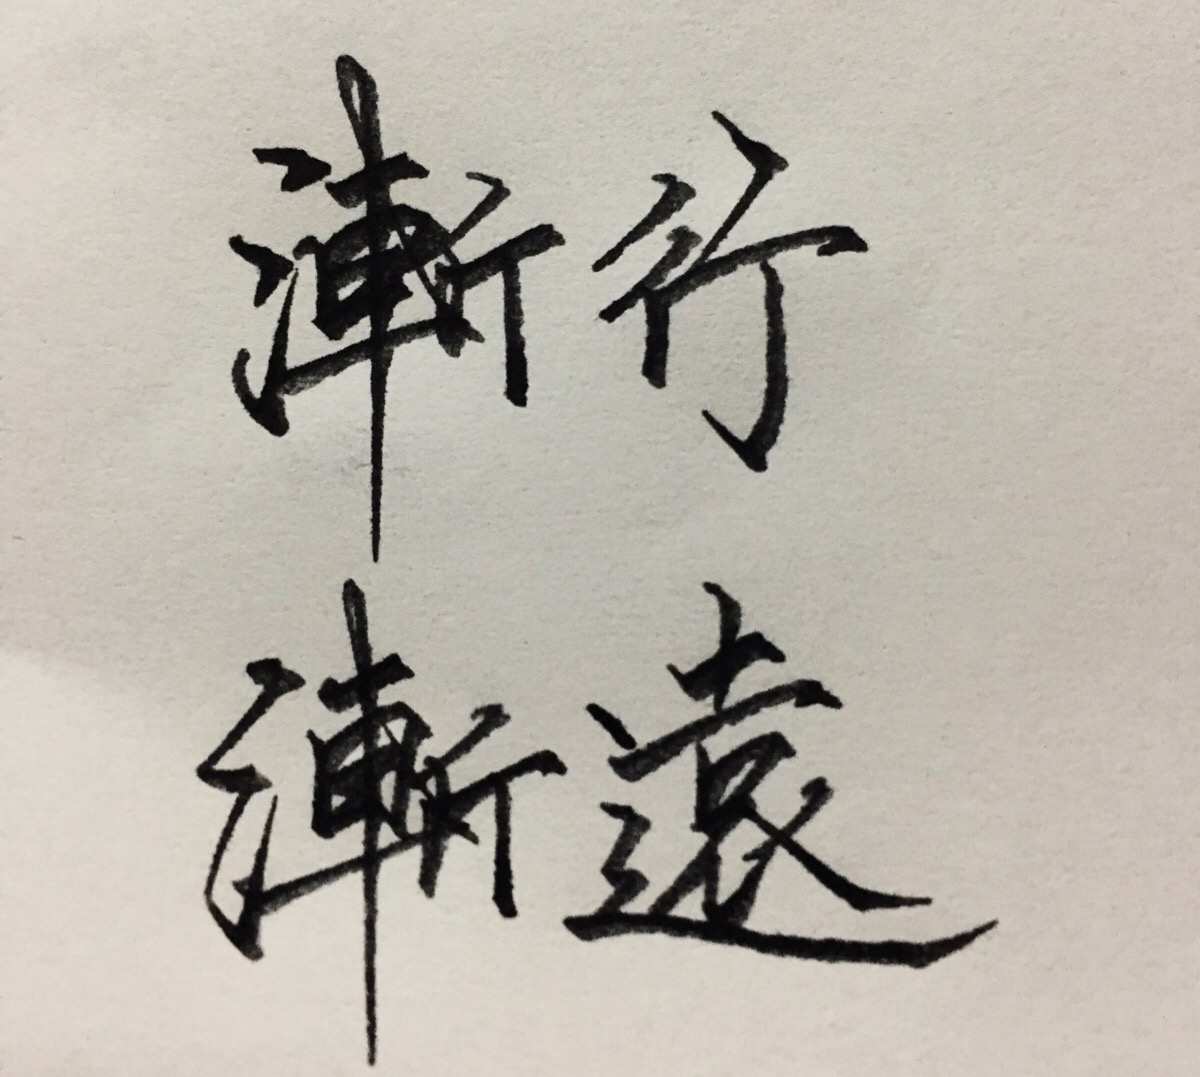 漸行
漸遠